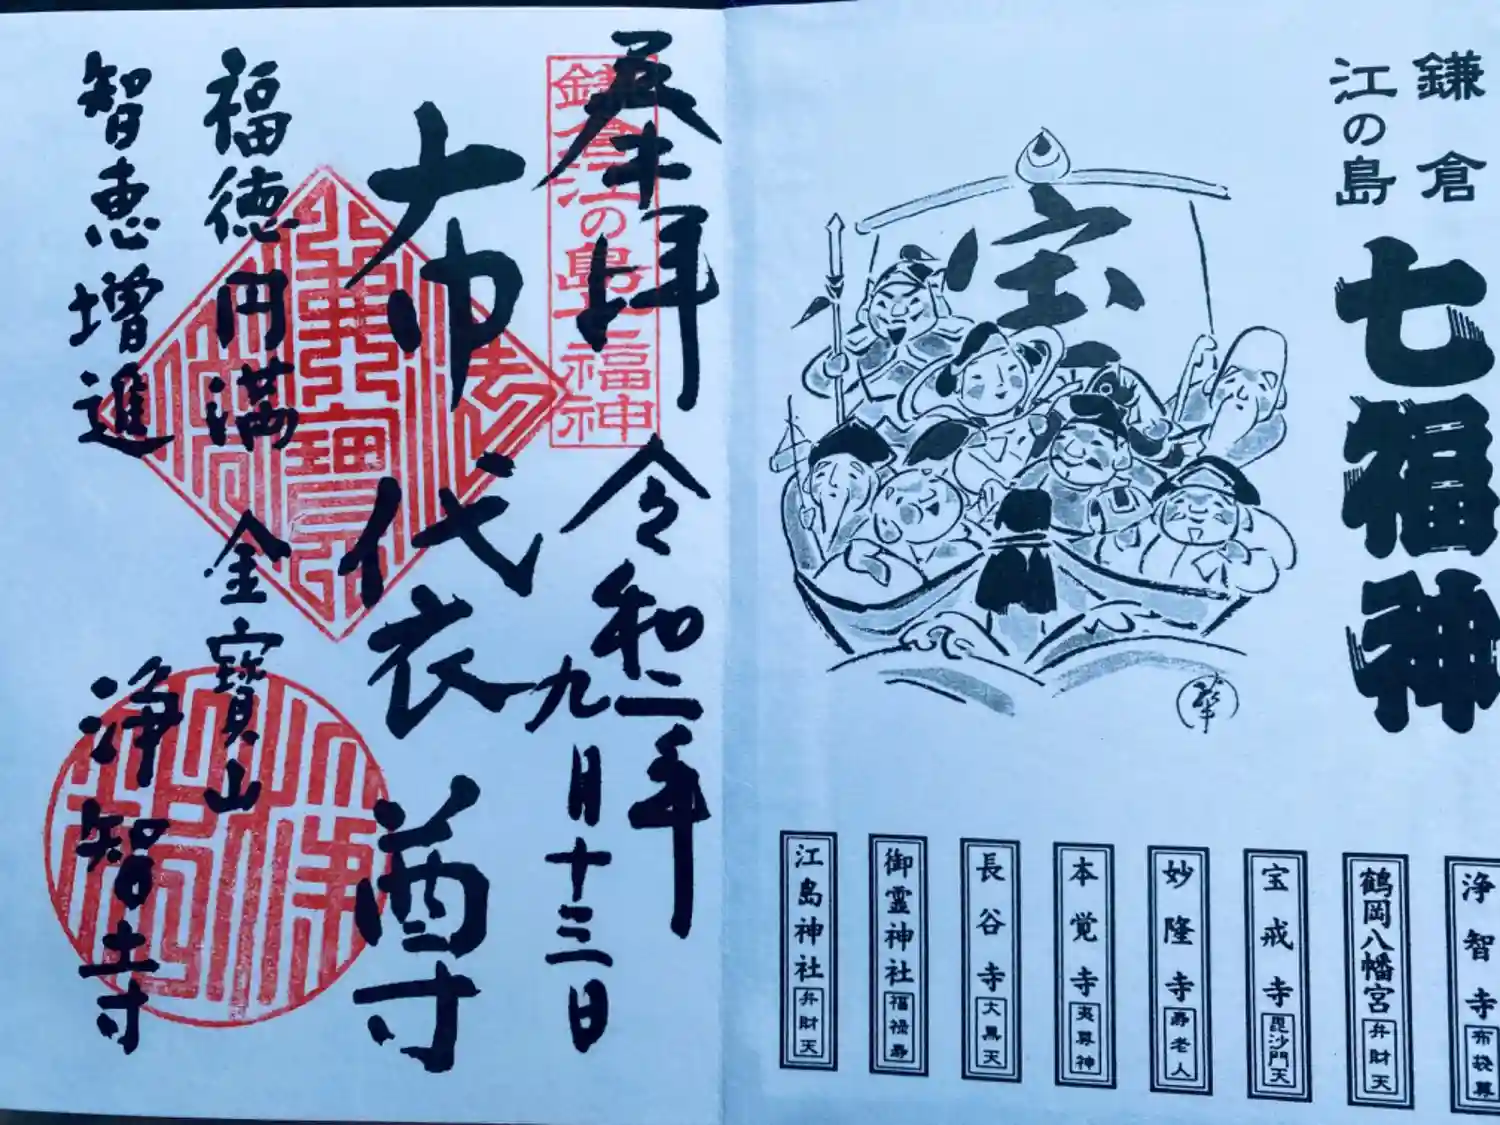 鎌倉
江の島
七福神
宝
浄智寺
布袋尊
鶴岡八幡宮
弁財天
宝戒寺
毘沙門天
妙隆寺
寿老人
本覚寺
夷尊神
長谷寺
大黒天
御霊神社
福禄寿
江島神社
弁財天
奉拝
鎌倉江の島七福神
令和二年
九月十三日
布袋尊
福徳円満
金寳山
智恵増進
浄智寺